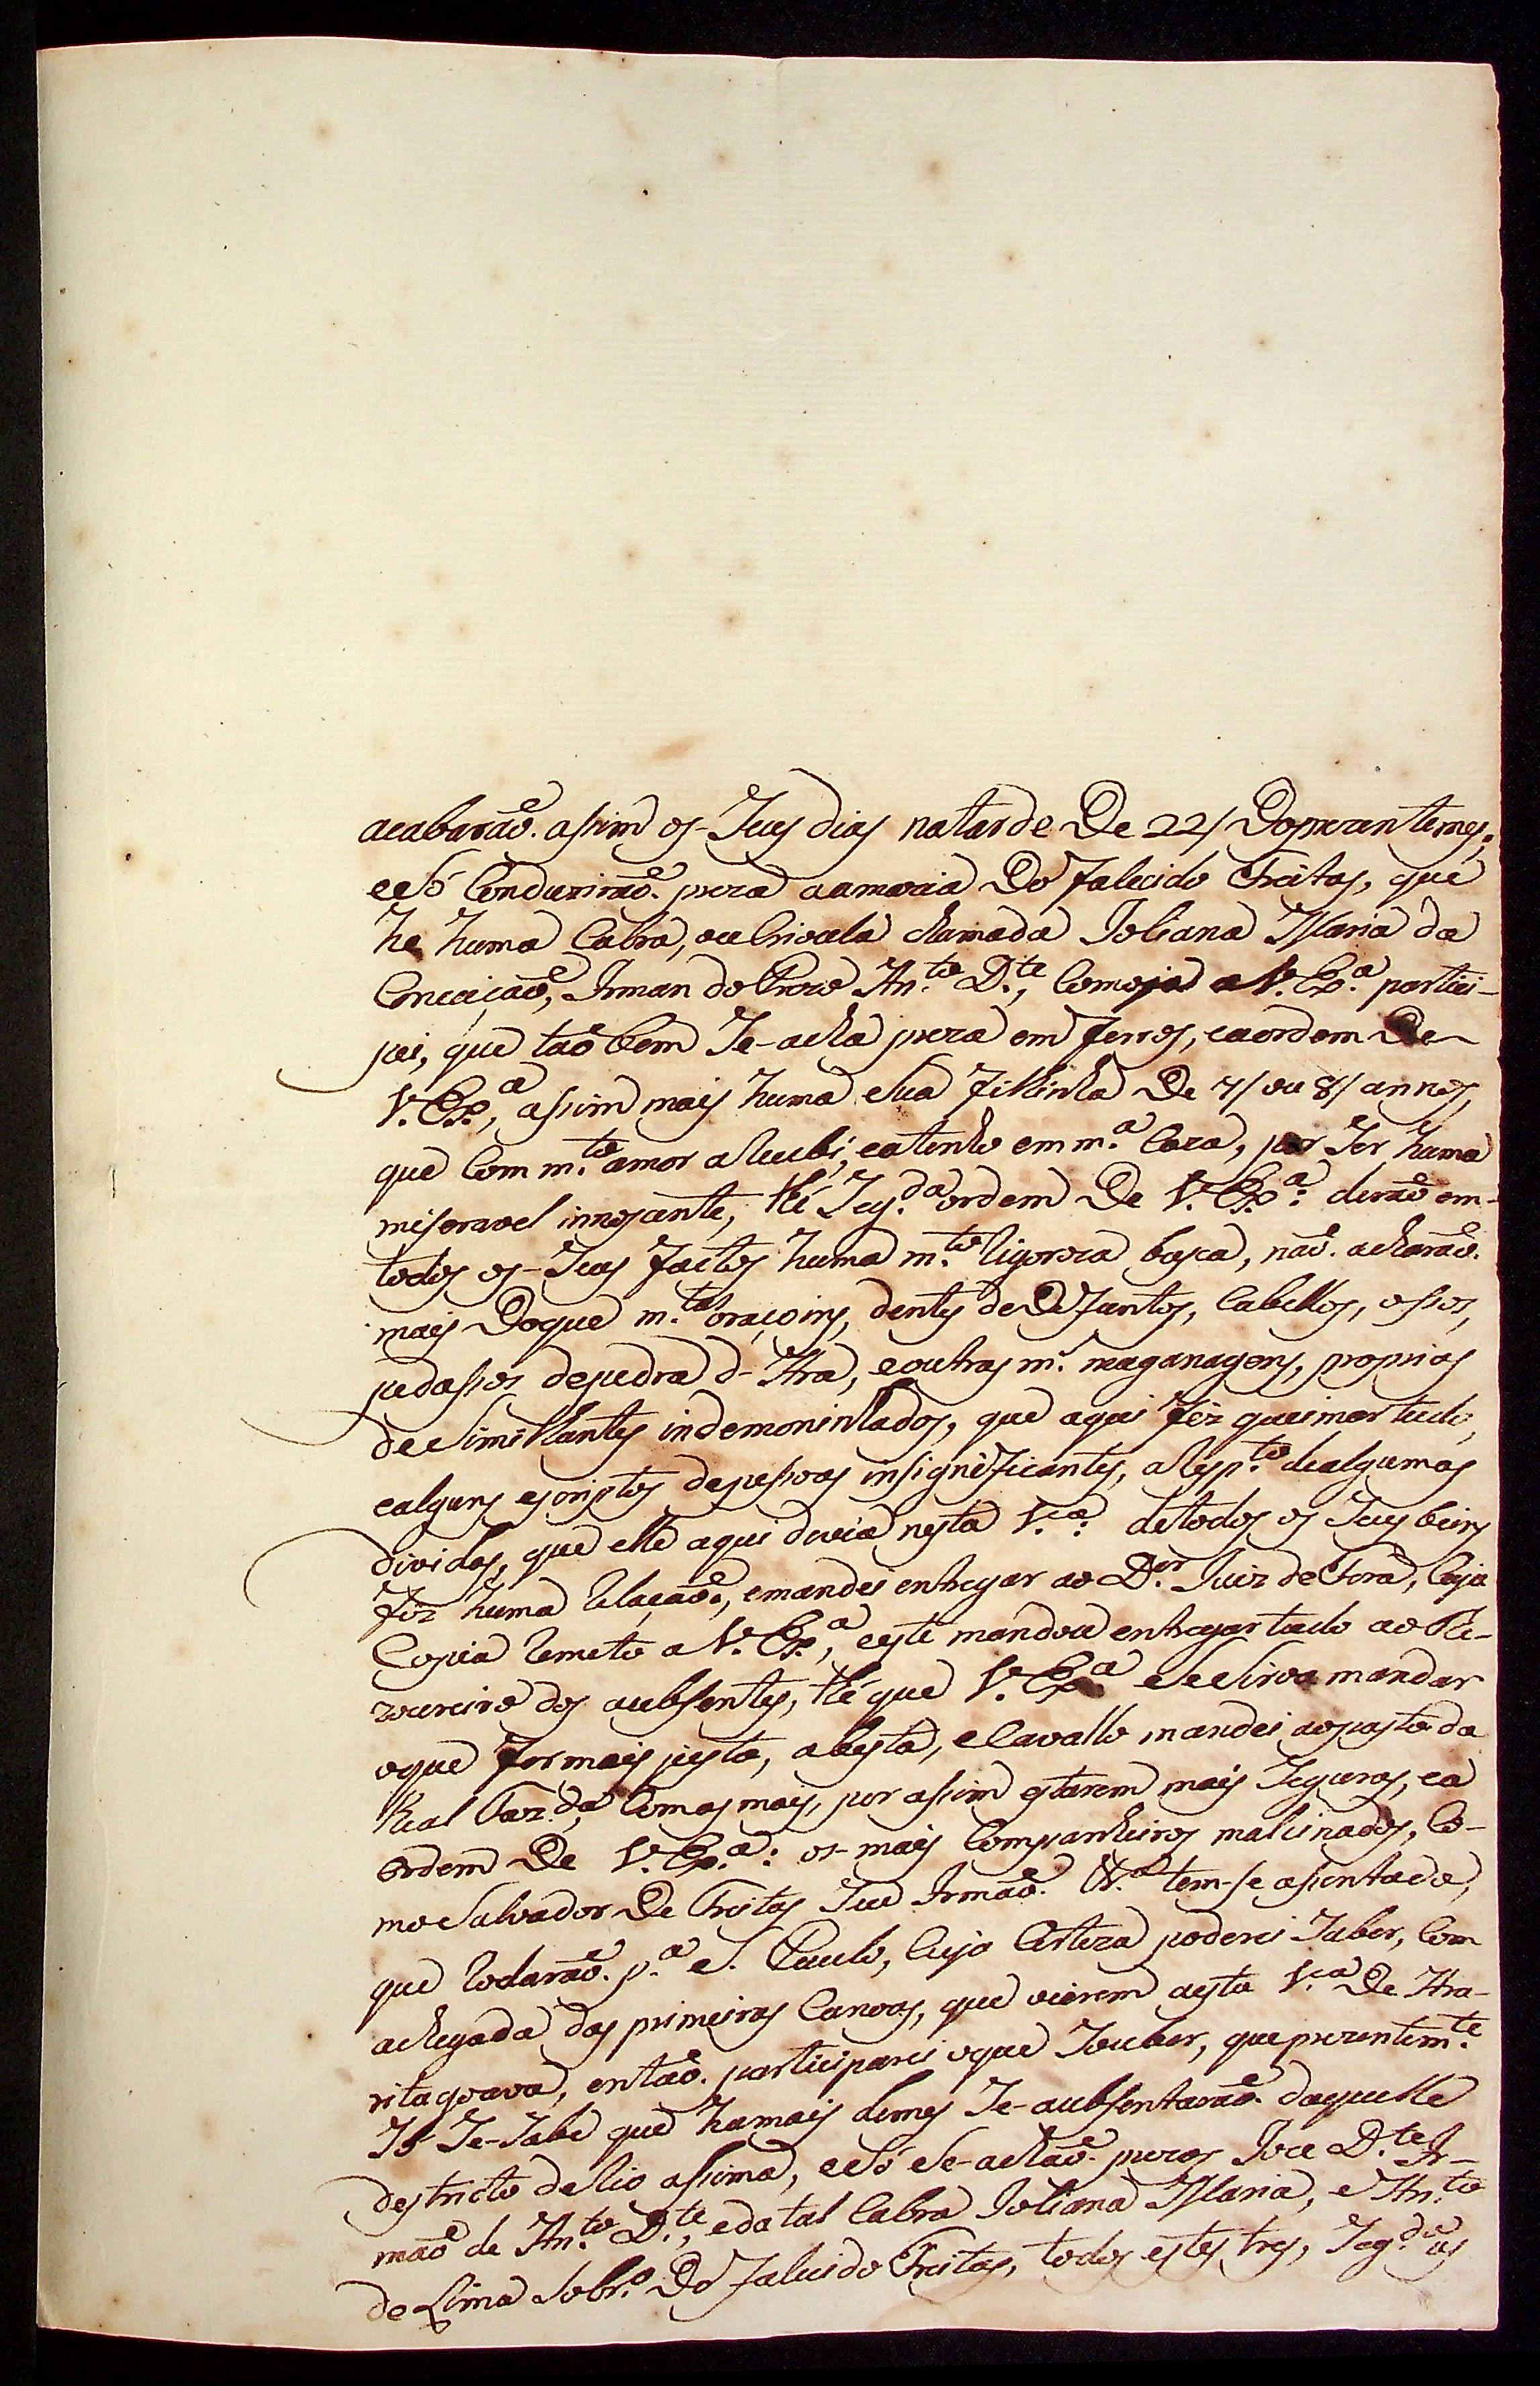 acabaraõ. assim os-Seus dias natarde De 22/ Doprezentemes;
e só Conduziraõ. preza aamazia Do falecido Freitas, que
he huma Cabra, ou Crioula chamada Joliana Maria da
Conceiçaõ, Irman do Prezo An.to D.te, Comoja a V. Ex.a partici-
pei, que taõbem Se-acha preza em ferros, eaordem De
V. Ex.a, assim mais huma Sua filhinha De 7/ ou 8/ annos,
que Com m.to amor aRecebi, eatenho em m.a Caza, por Ser huma
miseravel innosente, thé Seg.da ordem De V. Ex.a: deraõ em-
todos os-Seus factos huma m.to Rigoroza busca, naõ. acharaõ.
mais Doque m.tas oraçoins, dentes de Defuntos, Cabellos, ossos,
pedassos depedra d-Ara, eoutras m.s maganagens, proprias
deSimilhantes indemoninhados, que aqui fiz queimar tudo,
ealguns escriptos depessoas insignificantes, aResp.to dealgumas
dividas, que elle aqui devia nesta V.a: detodos os Seus beins
fiz huma Relaçaõ, emandei entregar ao D.or Juiz de Fora, Cuja
Copia Remeto a V. Ex.a, eeste mandou entregar tudo ao The-
zoureiro dos aubsentes, thé que V. Ex.a SeSirva mandar
oque for mais justo, abesta, eCavallo mandei aopasto da
Real Faz.da, Comasmais, por assim estarem mais Seguros, ea
Ordem De V. Ex.a: os-mais Companheiros malsinados, Co-
mo Salvador De Freitas Seu Irmaõ. &.a tem-se asentado,
que Rodaraõ. p.a S. Paulo, Cuja Certeza poderei Saber, Com
achegada das primeiras Canoas, que vierem aesta V.a De Ara-
ritagoava, entaõ. participarei oque Souber, que prezentem.te
Só Se-Sabe que hamais demes Se-aubsentaraõ. daquelle
destricto deRio assima, e só Se-achaõ. prezos Joze D.te Ir-
maõ de An.to D.te, edatal Cabra Joliana Maria, e An.to
de Lima Sobr.o Do falecido Freitas, todos estes tres, Seg.do as